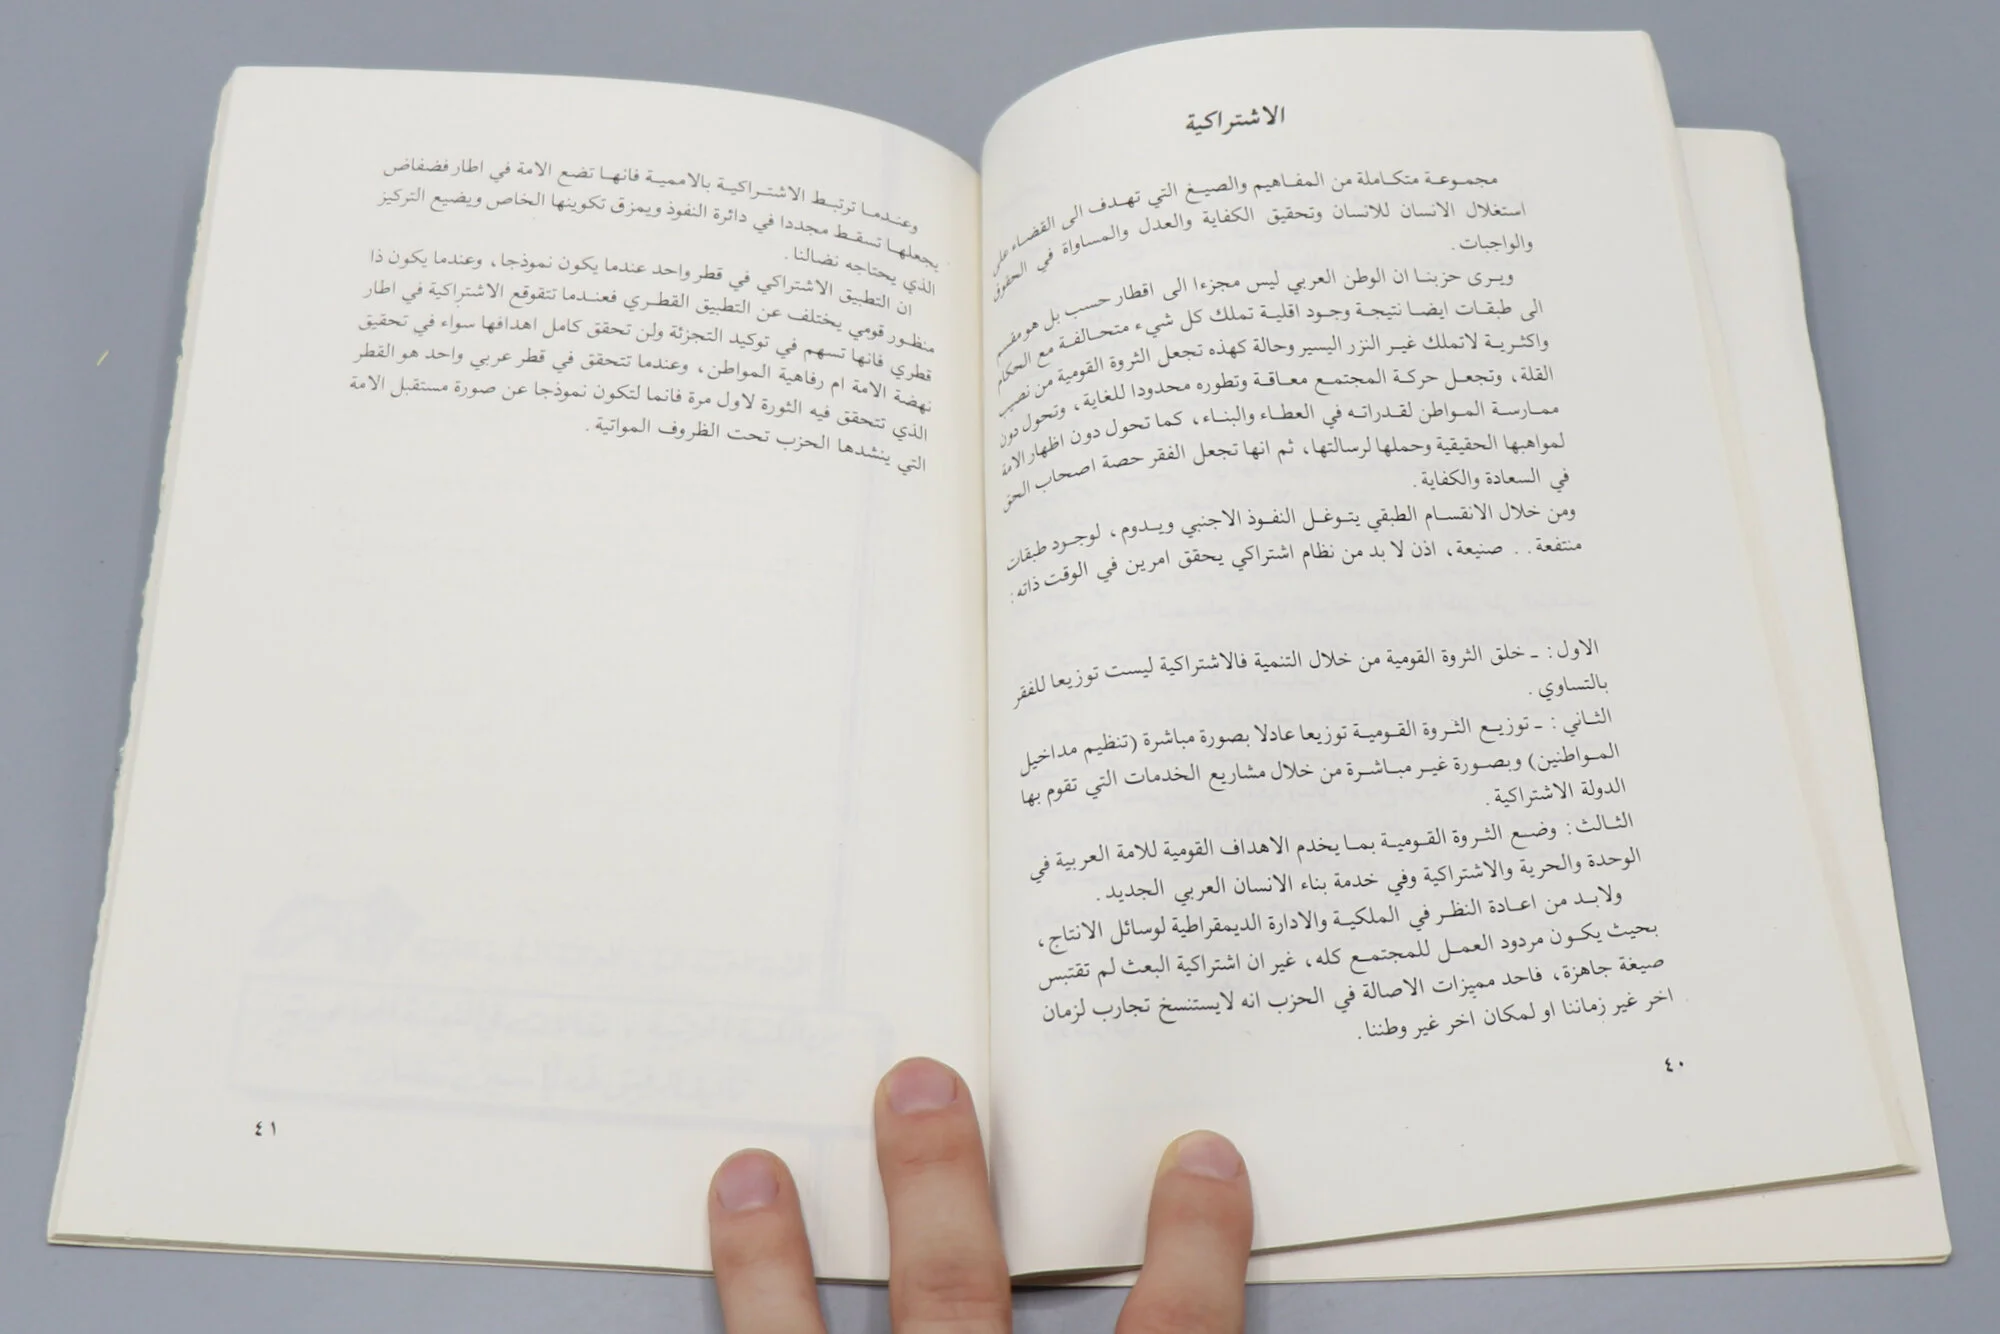 الاشتراكية
مجموعة متكاملة من المفاهيم والصيغ التي تهدف الى القضاء على
استغلال الانسان للانسان وتحقيق الكفاية والعدل والمساواة في الحقوق
والواجبات .
ويرى حزبنا ان الوطن العربي ليس مجزءا الى اقطار حسب بل هو مقسم
الى طبقات ايضا نتيجة وجود اقلية تملك كل شيء متحالفة مع الحكام
واكثرية لاتملك غير النزر اليسير وحالة كهذه تجعل الثروة القومية من نصيب
القلة ، وتجعل حركة المجتمع معاقة وتطوره محدودا للغاية ، وتحول دون
ممارسة المواطن لقدراته في العطاء والبناء، كما تحول دون اظهار الامة
لمواهبها الحقيقية وحملها لرسالتها، ثم انها تجعل الفقر حصة اصحاب الحق
في السعادة والكفاية .
ومن خلال الانقسام الطبقي يتوغل النفوذ الاجنبي ويدوم ، لوجود طبقات
منتفعة . . صنيعة، اذن لا بد من نظام اشتراكي يحقق امرين في الوقت ذاته :
الاول : ـ خلق الثروة القومية من خلال التنمية فالاشتراكية ليست توزيعا للفقر
بالتساوي .
الثاني : ـ توزيع الثروة القومية توزيعا عادلا بصورة مباشرة (تنظيم مداخيل
المواطنين) وبصورة غير مباشرة من خلال مشاريع الخدمات التي تقوم بها
الدولة الاشتراكية .
الثالث : وضع الثروة القومية بما يخدم الاهداف القومية للامة العربية في
الوحدة والحرية والاشتراكية وفي خدمة بناء الانسان العربي الجديد .
ولابد من اعادة النظر في الملكية والادارة الديمقراطية لوسائل الانتاج ،
بحيث يكون مردود العمل للمجتمع كله، غير ان اشتراكية البعث لم تقتبس
صيغة جاهزة، فاحد مميزات الاصالة في الحزب انه لايستنسخ تجارب لزمان
اخر غير زماننا او لمكان اخر غير وطننا .
٤٠
وعندما ترتبط الاشتراكية بالاممية فانها تضع الامة في اطار فضفاض
يجعلها تسقط مجددا في دائرة النفوذ ويمزق تكوينها الخاص ويضيع التركيز
الذي يحتاجه نضالنا .
ان التطبيق الاشتراكي في قطر واحد عندما يكون نموذجا، وعندما يكون ذا
منظور قومي يختلف عن التطبيق القطري فعندما تتقوقع الاشتراكية في اطار
قطري فانها تسهم في توكيد التجزئة ولن تحقق كامل اهدافها سواء في تحقيق
نهضة الامة ام رفاهية المواطن، وعندما تتحقق في قطر عربي واحد هو القطر
الذي تتحقق فيه الثورة لاول مرة فانما لتكون نموذجا عن صورة مستقبل الامة
التي ينشدها الحزب تحت الظروف المواتية .
٤١